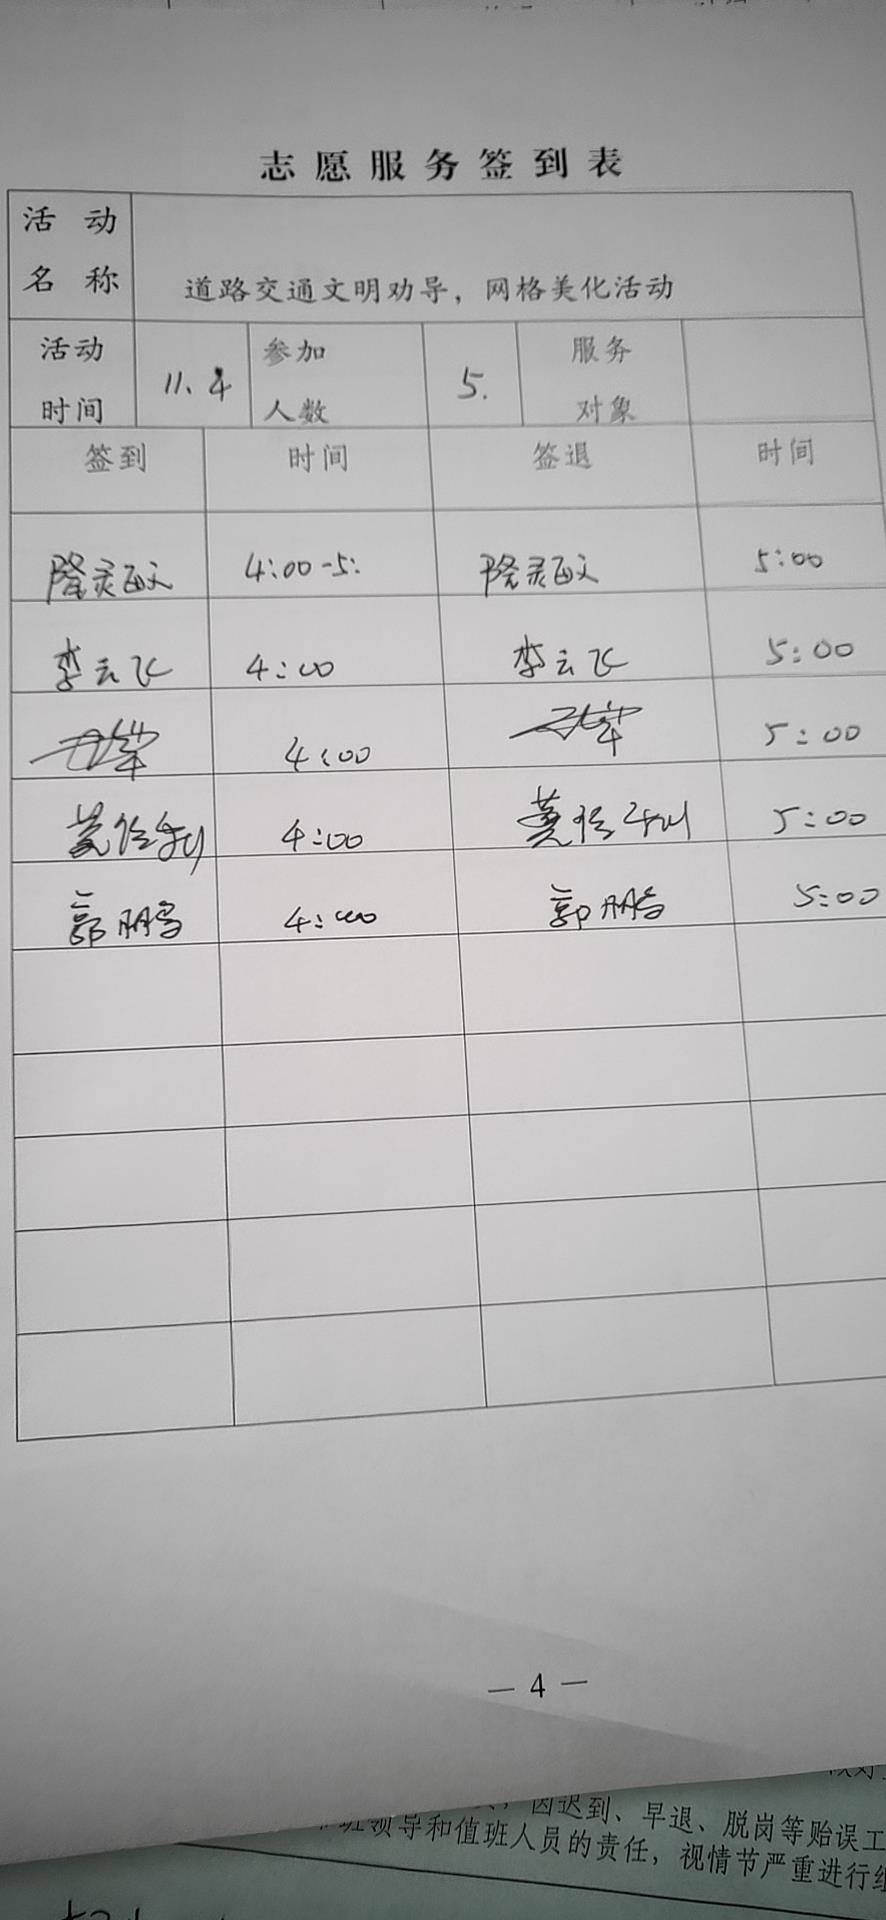 志愿服务签到表
活动名称 道路交通文明劝导，网格美化活动
活动时间 11.4 参加人数 5. 服务对象
签到 时间 签退 时间
隆灵 4:00-5: 隆灵 5:00
李云飞 4:00 李云飞 5:00
4:00 5:00
4:00 5:00
郭鹏 4:00 郭鹏 5:00
— 4 —
因迟到、早退、脱岗等贻误工
班领导和值班人员的责任，视情节严重进行组